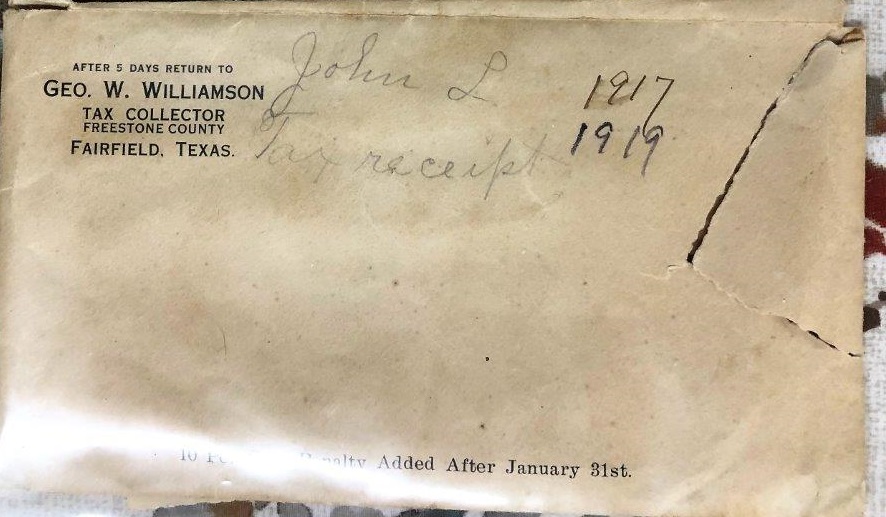 AFTER 5 DAYS RETURN TO
GEO. W. WILLIAMSON
TAX COLLECTOR
FREESTONE COUNTY
FAIRFIELD, TEXAS.
John L
Tax receipt
1917
1919
10 Penalty Added After January 31st.